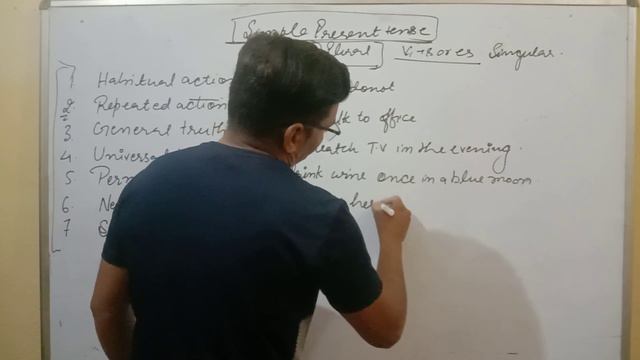 Simple Present tense
Plural V₁+s or es Singular.
1 Habitual action donot
2. Repeated action to office
3. General truth
4. Universal watch TV in the evening.
5 Perm drink wine once in a blue moon.
6. Ne he
7